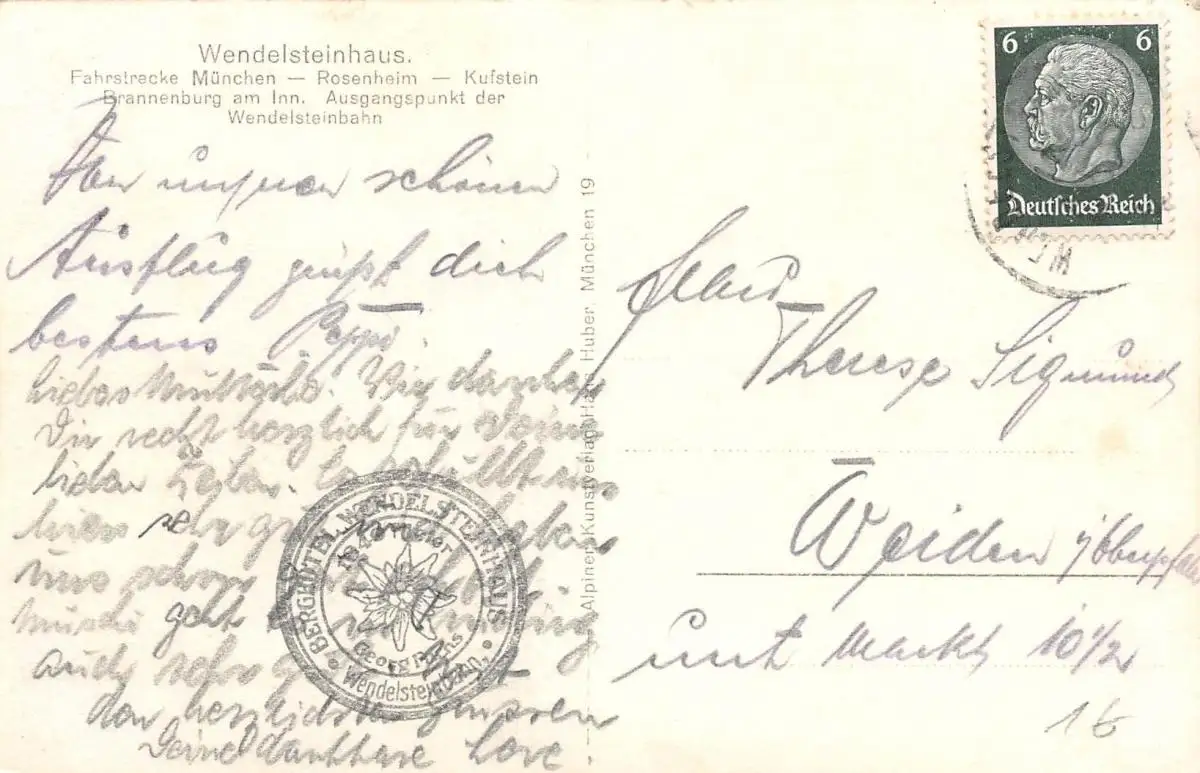 Wendelsteinhaus.
Fahrstrecke München — Rosenheim — Kufstein
Brannenburg am Inn. Ausgangspunkt der
Wendelsteinbahn
Von unserem schönen
Ausflug grüßt dich
bestens Peppi.
Liebes Mutterle. Wir danken
Dir recht herzlich für Deine
lieben Zeilen. Es gefällt uns
hier sehr
uns schon
Muschi geht
auch sehr
den herzlichsten Grüssen
Deine dankbare Lore.
BERGHOTEL WENDELSTEINHAUS
Georg
Wendelsteinbahn
Alpiner Kunstverlag Hans Huber, München 19
6 6
Deutsches Reich
Frau
Therese Sigmund
Weiden i/Oberpfalz
unt Markt 10 1/2
16